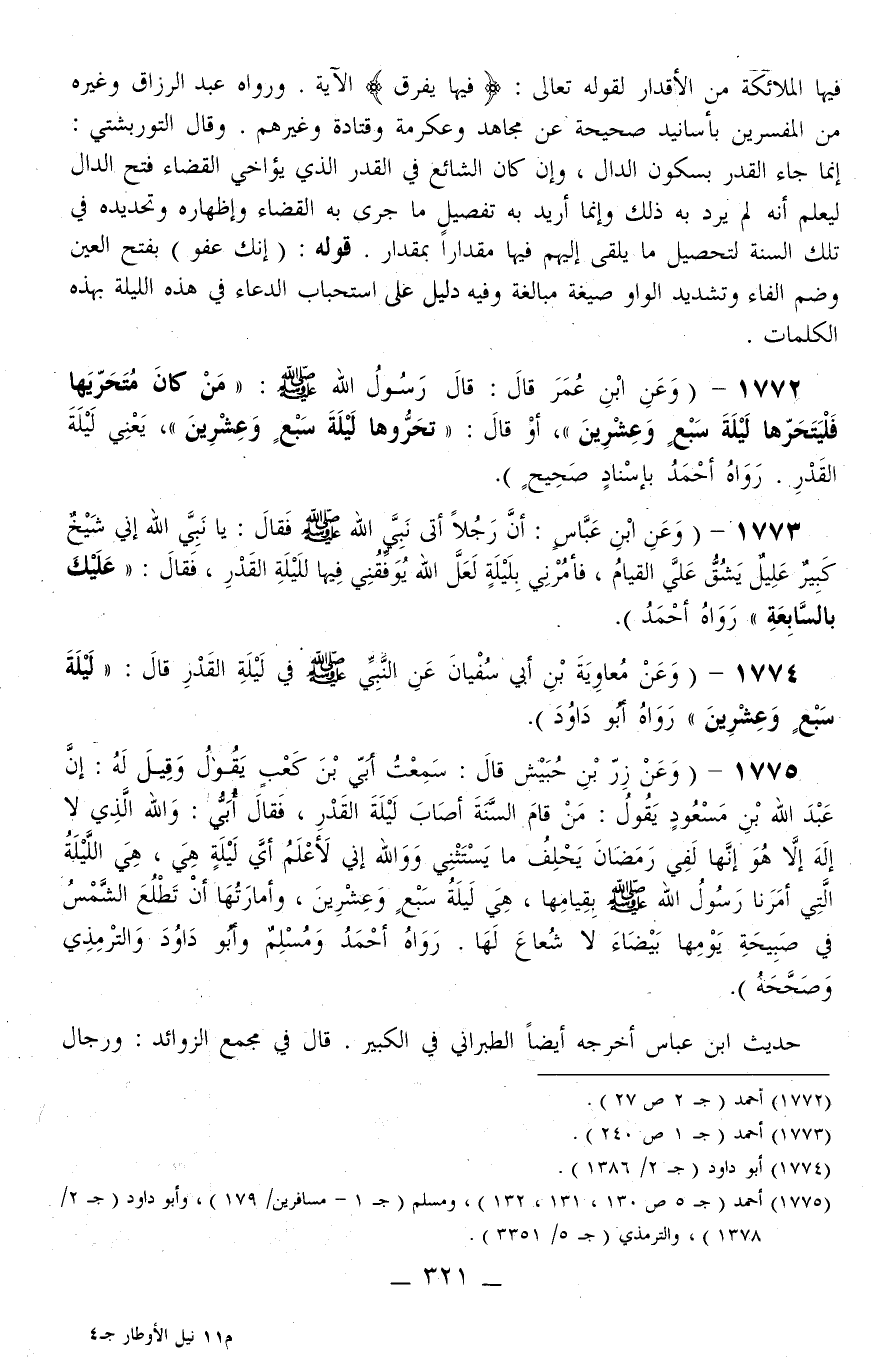 فيها الملائكة من الأقدار لقوله تعالى : ﴿ فيها يفرق ﴾ الآية . ورواه عبد الرزاق وغيره
من المفسرين بأسانيد صحيحة عن مجاهد وعكرمة وقتادة وغيرهم . وقال التوربشتي :
إنما جاء القدر بسكون الدال ، وإن كان الشائع في القدر الذي يؤاخي القضاء فتح الدال
ليعلم أنه لم يرد به ذلك وإنما أريد به تفصيل ما جرى به القضاء وإظهاره وتحديده في
تلك السنة لتحصيل ما يلقى إليهم فيها مقداراً بمقدار . قوله : ( إنك عفو ) بفتح العين
وضم الفاء وتشديد الواو صيغة مبالغة وفيه دليل على استحباب الدعاء في هذه الليلة بهذه
الكلمات .
١٧٧٢ – ( وَعَنِ ابْنِ عُمَرَ قالَ : قالَ رَسُولُ الله ﷺ : « مَنْ كانَ مُتَحَرِّيَها
فَلْيَتَحَرّها لَيْلَةَ سَبْعٍ وَعِشْرِينَ »، أوْ قالَ : « تحَرُّوها لَيْلَةَ سَبْعٍ وَعِشْرِينَ »، يَعْنِي لَيْلَةَ
القَدْرِ . رَوَاهُ أحْمَدُ بإسْنادٍ صَحِيحٍ ).
١٧٧٣ – ( وَعَنِ ابْنِ عَبَّاسٍ : أنَّ رَجُلاً أتى نَبِيَّ الله ﷺ فَقالَ : يا نَبِيَّ الله إني شَيْخٌ
كَبِيرٌ عَلِيلٌ يَشُقُّ عَلَيَّ القيامُ ، فأمُرْنِي بِلَيْلَةٍ لَعَلَّ الله يُوَفِّقُنِي فِيها للَيْلَةِ القَدْرِ ، فَقالَ : « عَلَيْكَ
بالسَّابِعَةِ » رَوَاهُ أحْمَدُ ).
١٧٧٤ – ( وَعَنْ مُعاوِيَةَ بْنِ أبي سُفْيانَ عَنِ النَّبِيِّ ﷺ في لَيْلَةِ القَدْرِ قالَ : « لَيْلَةُ
سَبْعٍ وَعِشْرِينَ » رَوَاهُ أبُو دَاوُدَ ).
١٧٧٥ – ( وَعَنْ زِرّ بْنِ حُبَيْش قالَ : سَمِعْتُ أبَيّ بْنَ كَعْبٍ يَقُولُ وَقِيلَ لَهُ : إنَّ
عَبْدَ الله بْنِ مَسْعُودٍ يَقُولُ : مَنْ قامَ السَّنَةَ أصَابَ لَيْلَةَ القَدْرِ ، فَقالَ أُبَيُّ : وَالله الَّذِي لا
إلَهَ إلَّا هُوَ إنَّها لَفِي رَمَضَانَ يَحْلِفُ ما يَسْتَثْنِي وَوَالله إني لَأعْلَمُ أيَّ لَيْلَةٍ هِيَ ، هِيَ اللَّيْلَةُ
الَّتِي أمَرَنا رَسُولُ الله ﷺ بِقِيامِها ، هِيَ لَيْلَةُ سَبْعٍ وَعِشْرِينَ ، وأمارَتُهَا أنْ تَطْلُعَ الشَّمْسُ
في صَبِيحَةِ يَوْمِها بَيْضَاءَ لا شُعاعَ لَهَا . رَوَاهُ أحْمَدُ وَمُسْلِمٌ وأبُو دَاوُدَ وَالترْمِذِي
وَصَحَّحَهُ ).
حديث ابن عباس أخرجه أيضاً الطبراني في الكبير . قال في مجمع الزوائد : ورجال
(١٧٧٢) أحمد ( جـ ٢ ص ٢٧ ) .
(١٧٧٣) أحمد ( جـ ١ ص ٢٤٠ ) .
(١٧٧٤) أبو داود ( جـ ٢/ ١٣٨٦ ) .
(١٧٧٥) أحمد ( جـ ٥ ص ١٣٠ ، ١٣١ ، ١٣٢ ) ، ومسلم ( جـ ١ – مسافرين/ ١٧٩ ) ، وأبو داود ( جـ ٢/
١٣٧٨ ) ، والترمذي ( جـ ٥/ ٣٣٥١ ) .
– ٣٢١ –
م١١ نيل الأوطار جـ٤